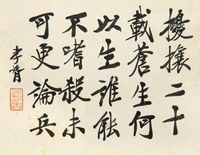 擾攘二十
載蒼生何
以生誰能
不嗜殺未
可更論兵
李胥